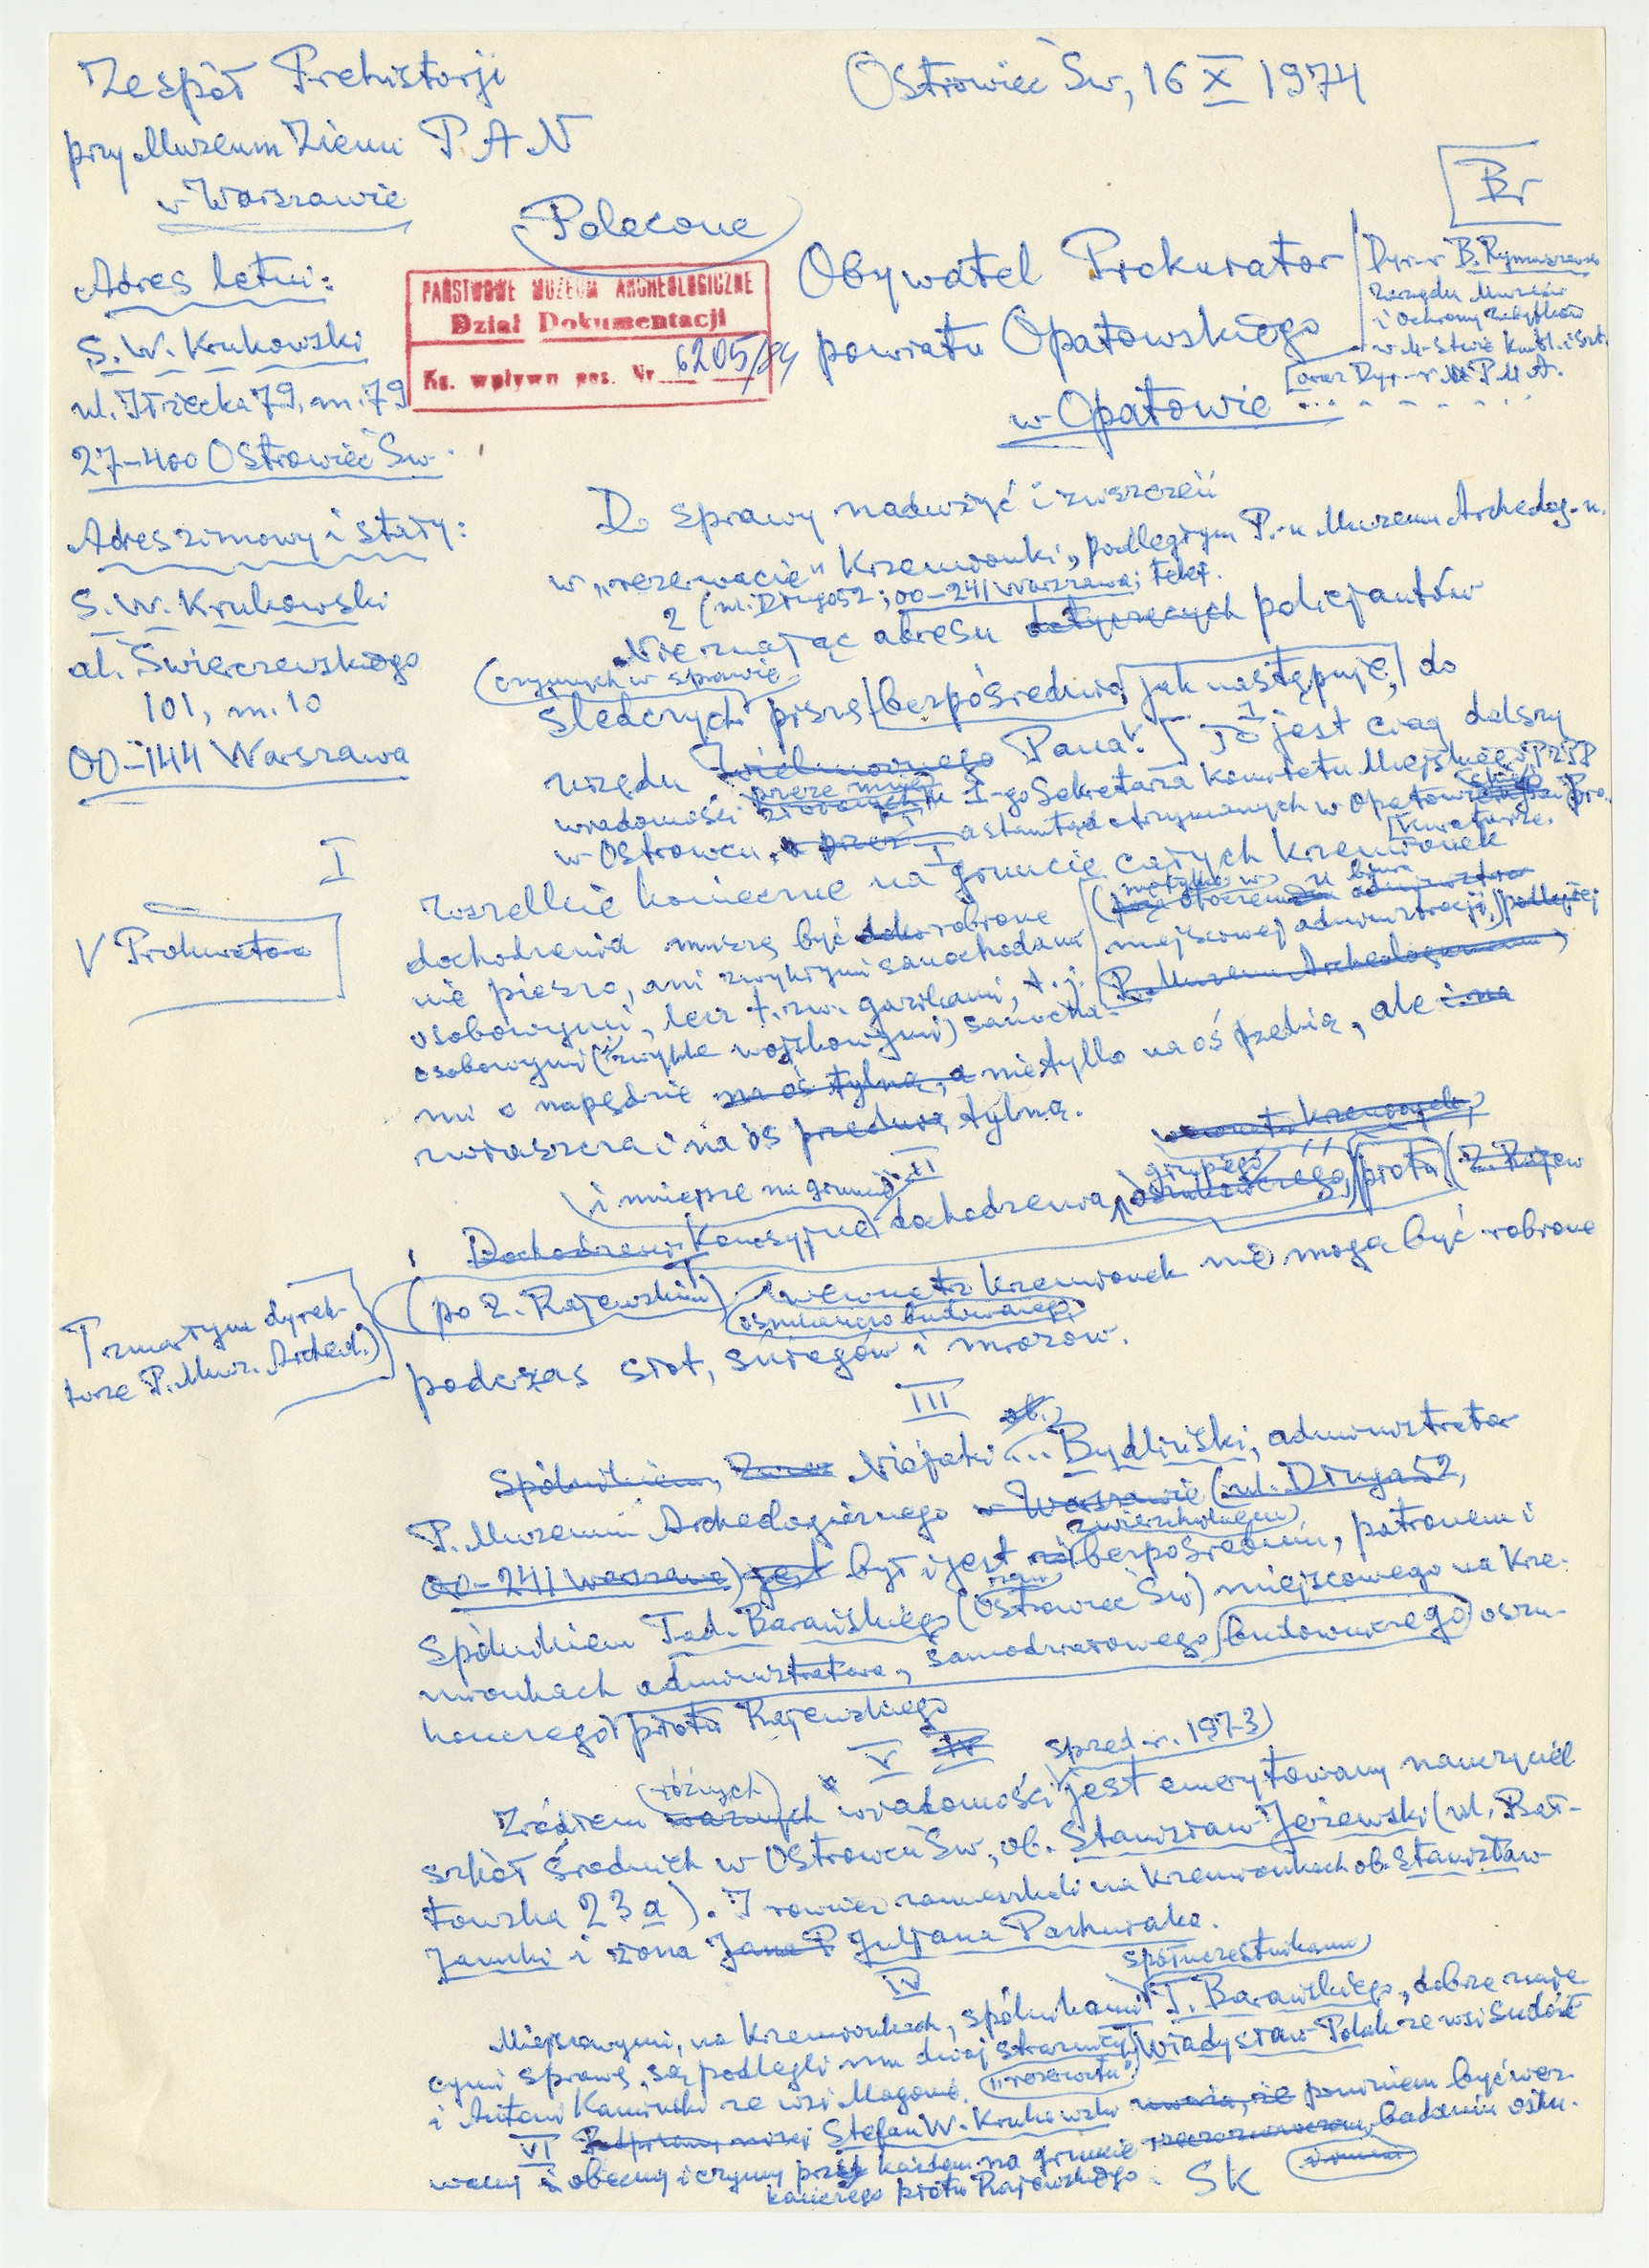 Zespół Prehistorji
przy Muzeum Ziemi P A N
w Warszawie
Ostrowiec Św, 16 X 1974
Polecone
Br
Adres letni:
S. W. Krukowski
ul. Iłżecka 79, m. 79
27-400 Ostrowiec Św.
PAŃSTWOWE MUZEUM ARCHEOLOGICZNE
Dział Dokumentacji
Ks. wpływu poz. Nr 6205/84
Obywatel Prokurator
powiatu Opatowskiego
w Opatowie
Dyr-r B. Rymaszewski
Zarządu Muzeów
i Ochrony Zabytków
w M-stwie Kult. i Szt.
oraz Dyr-r P M A.
Adres zimowy i stały:
S. W. Krukowski
al. Świerczewskiego
101, m. 10
00-144 Warszawa
Do sprawy nadużyć i zniszczeń
w „rezerwacie" Krzemionki, podległym P. Muzeum Archeolog.
2 (ul. Długa 52; 00-241 Warszawa; telef.
Nie znając adresu dotyczących policjantów
(czynnych w sprawie)
śledczych piszę bezpośrednio, jak następuje, do
urzędu Pana. To jest ciąg dalszy
przeze mnie
wiadomości I-go Sekretarza Komitetu Miejskiego PZPR
w Ostrowcu, a stamtąd otrzymanych w Opatowskiej Pro-
kuraturze.
I
Wszelkie konieczne na gruncie całych Krzemionek
V Prokurator
dochodzenia muszą być robione
miejscowej administracji,) podległej
nie pieszo, ani zwykłymi samochodami
P. Muzeum Archeologicznemu,
osobowymi, lecz t. zw. gazikami, t. j.
osobowymi (zwykle wojskowymi) samocha-
mi o napędzie na oś tylną, a nie tylko na oś przednią, ale i na
zwłaszcza i na oś przednią, tylną.
II
i mniejsze na gruncie
dochodzenia, płotu
T zmarłym dyrek-
torze P. Muz. Archeol.)
(po Z. Rajewskim) wewnątrz Krzemionek nie mogą być robione
podczas słot, śniegów i mrozów.
III
Spólnikiem, Niejaki ... Bydliński, administrator
P. Muzeum Archeologicznego w Warszawie (ul. Długa 52,
zwierzchnikiem
00-241 Warszawa) jest był i jest bezpośrednim, patronem i
Spólnikiem Tad. Barańskiego (Ostrowiec Św) miejscowego na Krze-
mionkach administratora, samodziałowego budowniczego oszu-
kańczego płotu Rajewskiego
V IV sprzed r. 1973)
(różnych)
Źródłem ważnych wiadomości jest emerytowany nauczyciel
szkół średnich w Ostrowcu Św., ob. Stanisław Jeżewski (ul. Pol-
na 23a). I również zamieszkali na Krzemionkach ob. Stanisław
i żona Juljana Pachniaka.
IV
spółuczestnikami
Miejscowymi, na Krzemionkach, spólnikami T. Barańskiego, dobrze znają-
cymi sprawę, są podlegli mu dwaj strażnicy Władysław Polak ze wsi Sudół
„rezerwatu"
i Antoni Kamiński ze wsi Magonie.
VI Podpisany niżej Stefan W. Krukowski uważa, że powinien być wez-
wany i obecny i czynny przy każdem na gruncie badaniu oszu-
kańczego płotu Rajewskiego. SK